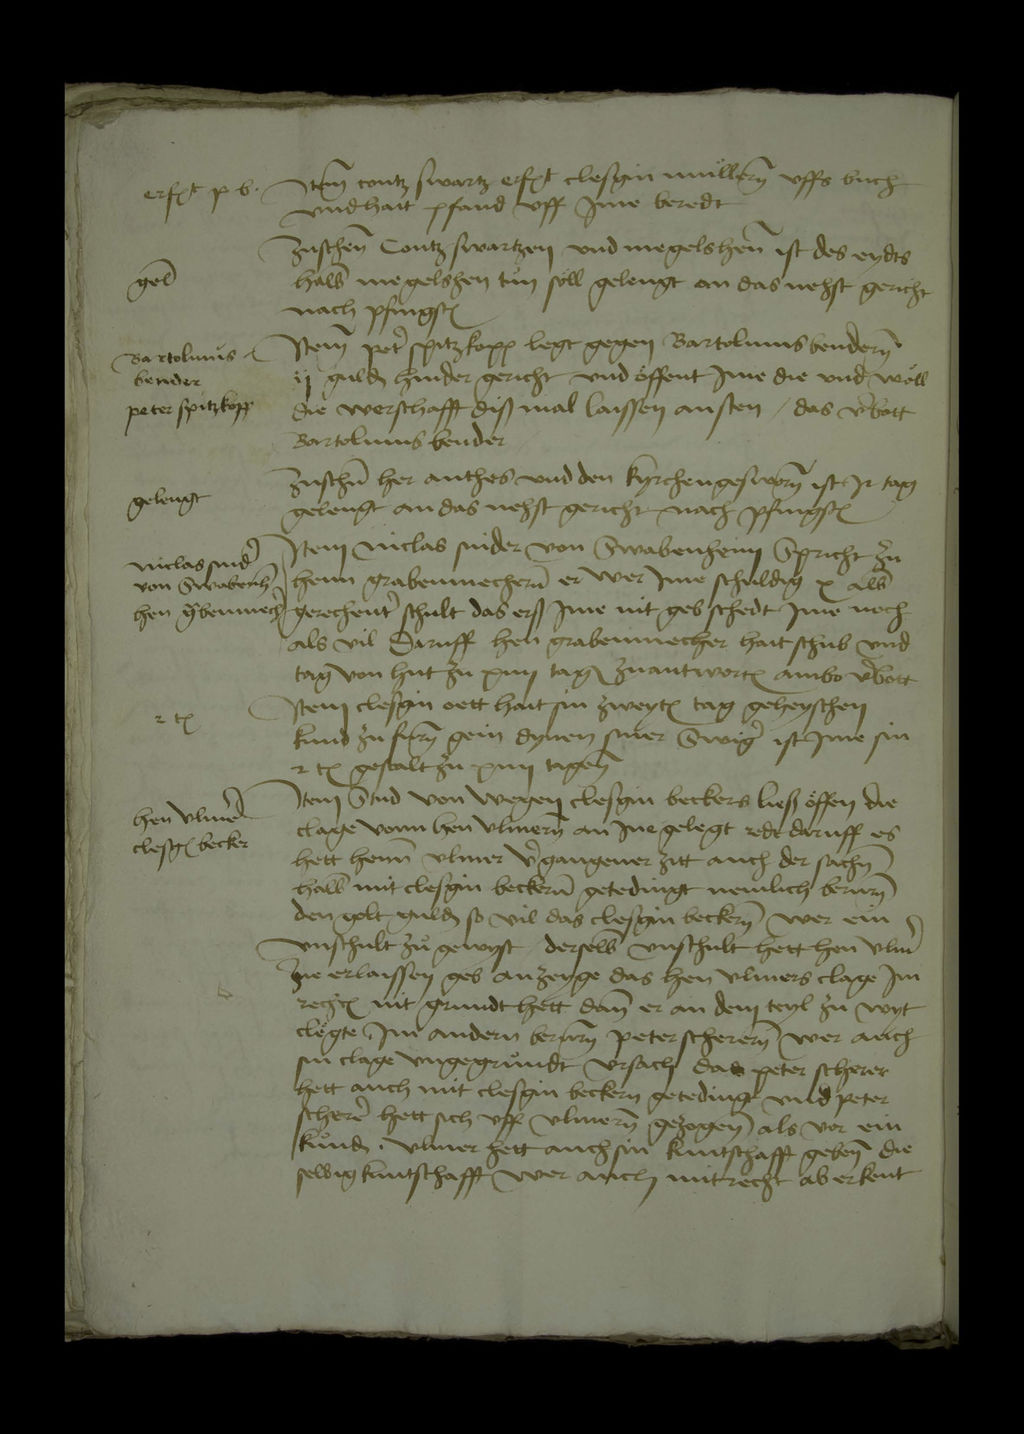 erf(is)t p b.
Item contz swartz erf(is)t clesgin mullern̄ uffs buch
und hait pfand uff Ime beredt
gel̄
Zuschen̄ Contz swartzen und megelshen̄ ist des eydts
halb megelshen tun söll gelengt an das nehst gericht
nach pfingst(en)
Bartolmus
bender
peter spitzkopp
Item pet(er) spitzkopp legt gegen Bartolmus bendern̄
ij guld(en) hinder gericht und öffent Ime die und wöll
die werschafft diß mal laissen ansten / das v(er)bott
Bartolmus bender
gelengt
Zuschn̄ her anthes und den kyrchengesworn̄ ist Ir tag
gelengt an das nehst gericht nach pfingst(en)
niclas snid(er)
von Swabenh(eim)
hen g(ra)benmech(er)
Item niclas snider von Swabenheim Spricht zu
henn grabenmechern̄ er wer Ime schuldig x alb
gerechent(er) schult das erß Ime nit geb schedt Ime noch
als vil Daruff hen grabenmecher hait schub und
tag von hut zu xiiij tag(en) zu antwort(en) ambo v(er)bott
2 t(ag)
Item clesgin oett hait sin zweyt(en) tag geheyschen
kund zu furn̄ gein dynen siner Swig(er) ist Ime sin
2 t(ag) gestalt zu xiiij tagen̄
hen ulm(er)
clesg(in) becker
Item Snid von wegen clesgin beckers ließ öffen die
clage venn hen ulmern̄ an Ine gelegt redt daruff es
hett henn̄ ulmer v(er)gangener zitt auch der sachn̄
halb mit clesgin beckern̄ getedingt nemlich berurn̄
den golt guld(en) so vil das clesgin beckern̄ wer ein
unschult zu gewyst / derselb unschult hett hen ulm(er)
Ine erlaissen geb anzeyge das hen ulmers clage Im
recht(en) nit grundt hett dan̄ er an dem teyl zu wyt
clegte / Im andern berurn̄ peter scherern̄ wer auch
sin clage ungegrundt ursach das peter scherer
hett auch mit clesgin beckern getedingt und peter
scher(er) hett sich uff ulmern̄ gezogen̄ als vor ein
kund(en) . ulmer hett auch sin kuntschafft geben̄ die
selbig kuntschafft wer auch mit recht ab erkent